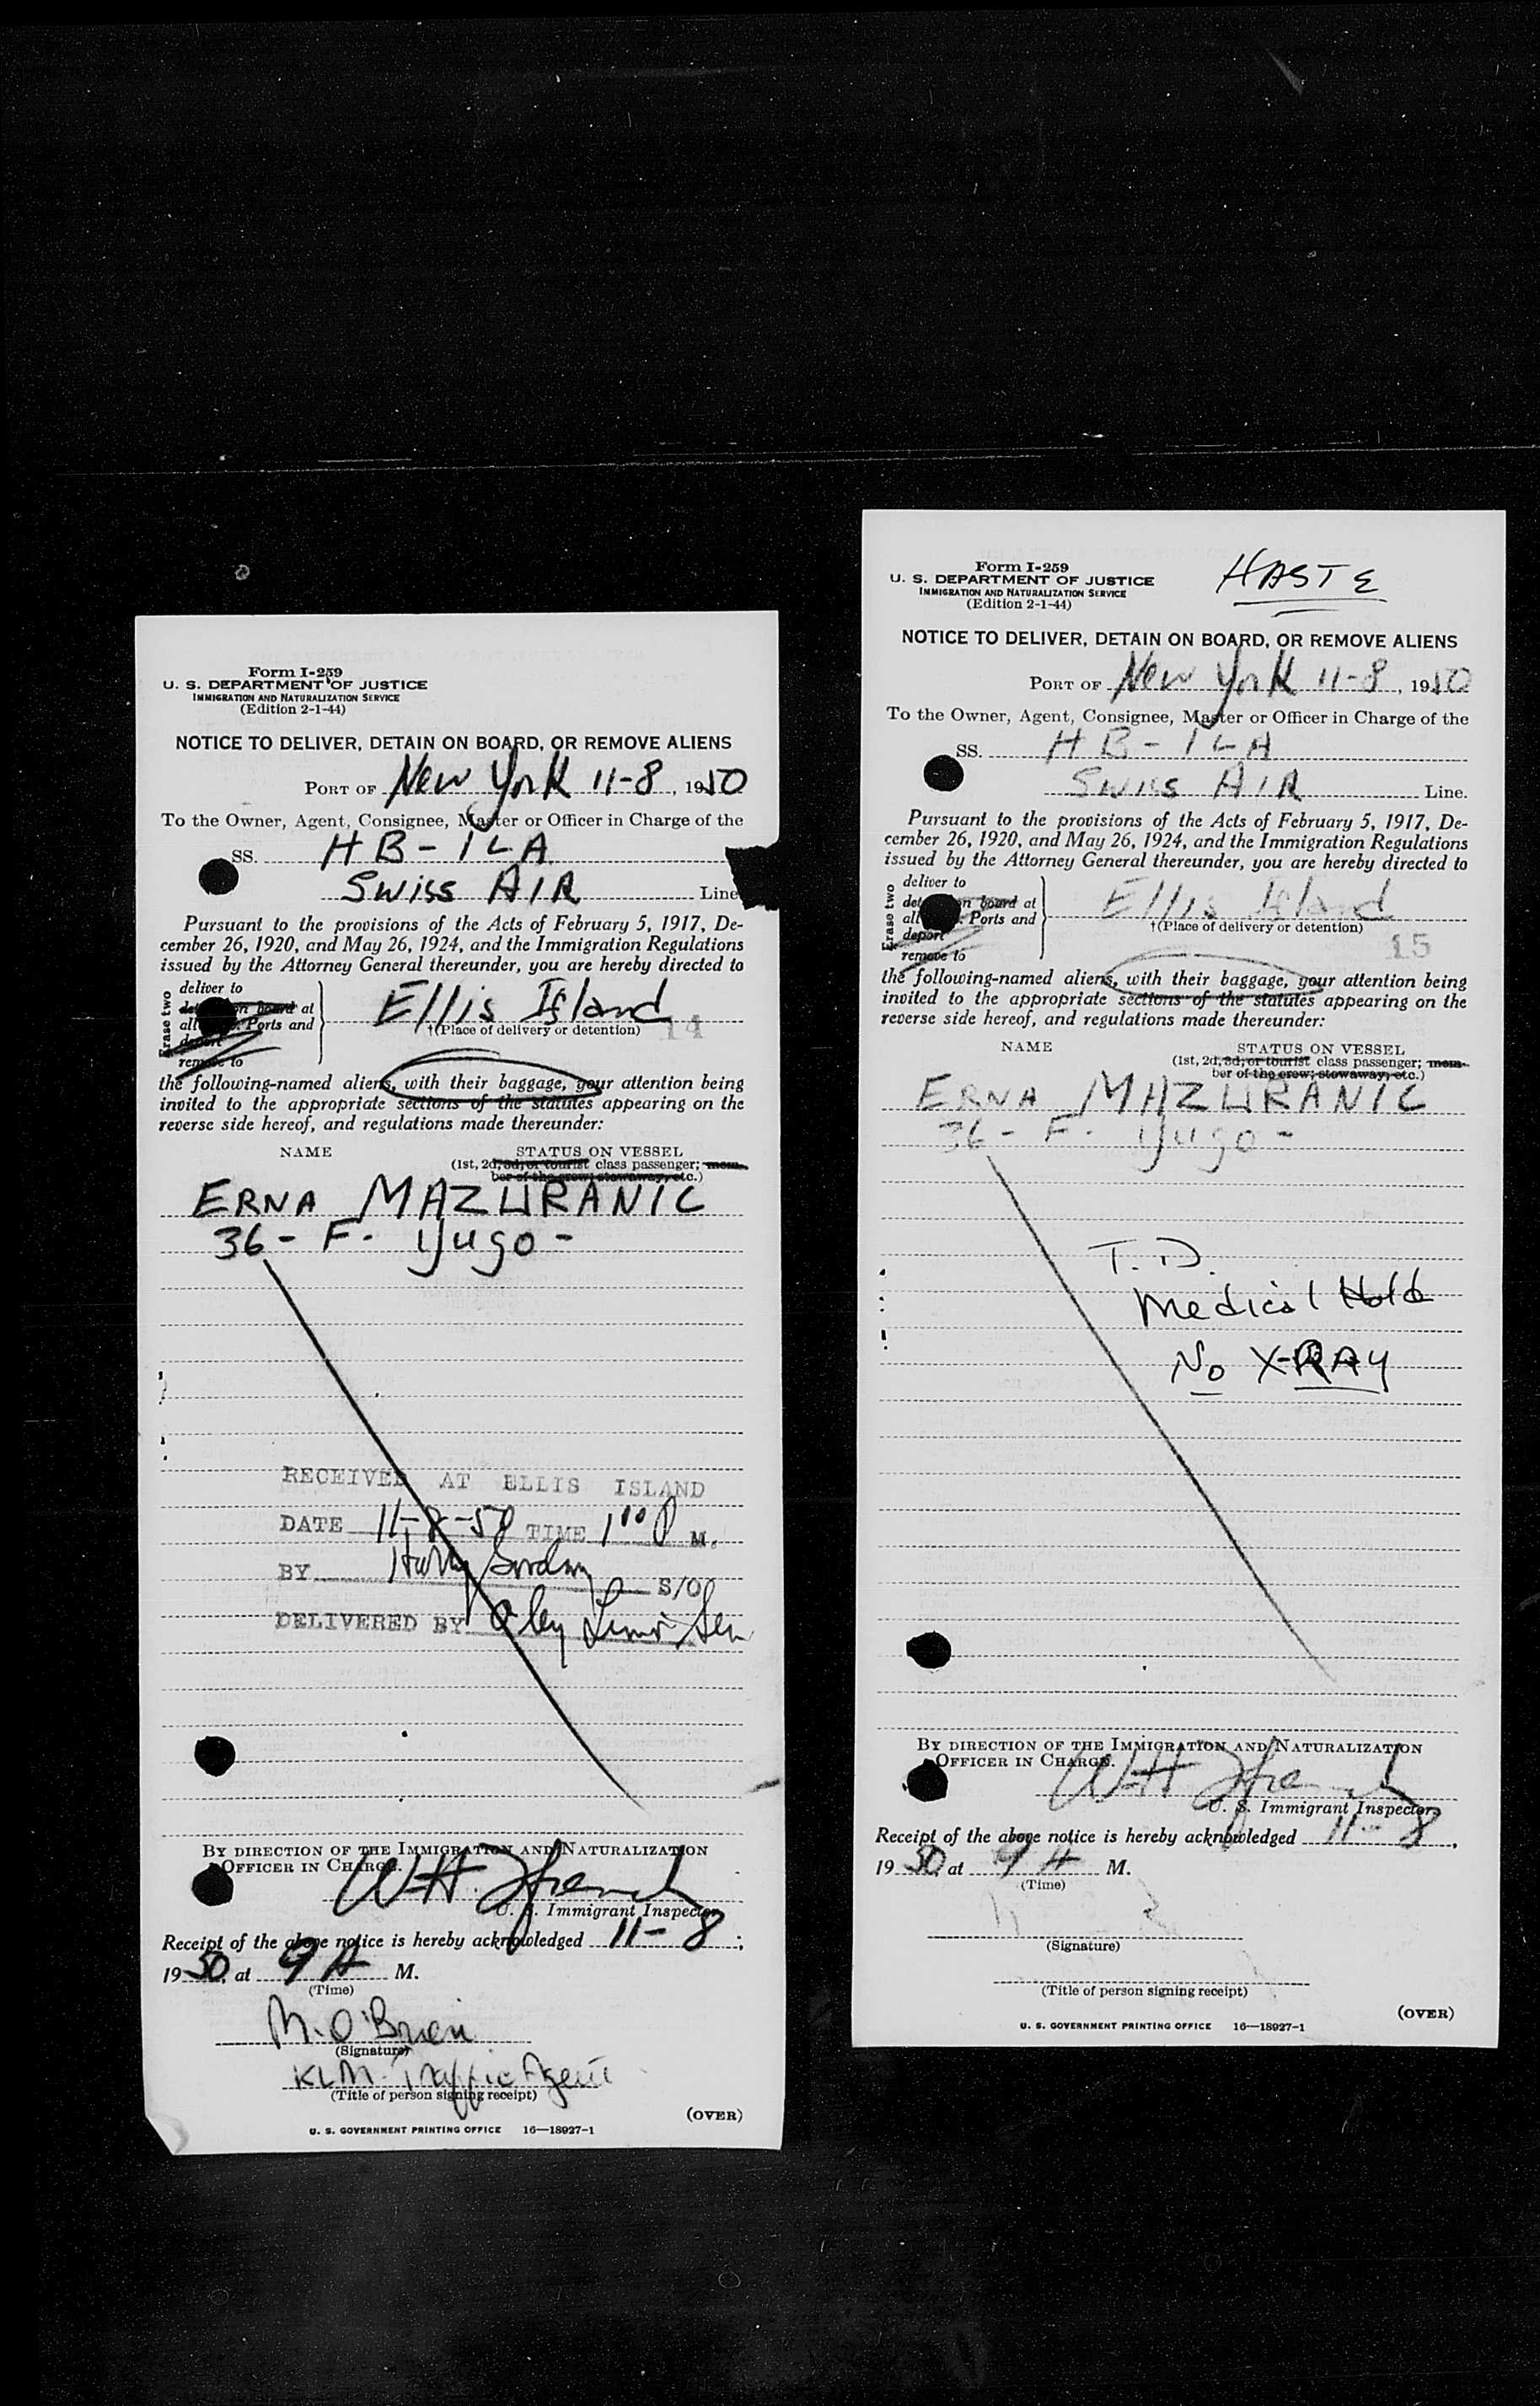 Form I-259
U. S. DEPARTMENT OF JUSTICE
IMMIGRATION AND NATURALIZATION SERVICE
(Edition 2-1-44)
NOTICE TO DELIVER, DETAIN ON BOARD, OR REMOVE ALIENS
PORT OF New York 11-8, 1950
To the Owner, Agent, Consignee, Master or Officer in Charge of the
SS. HB-ILA
Swiss AIR Line
Pursuant to the provisions of the Acts of February 5, 1917, De-
cember 26, 1920, and May 26, 1924, and the Immigration Regulations
issued by the Attorney General thereunder, you are hereby directed to
Erase two
deliver to
on board at
Ports and
deport
remove to
Ellis Island
†(Place of delivery or detention)
14
the following-named aliens, with their baggage, your attention being
invited to the appropriate sections of the statutes appearing on the
reverse side hereof, and regulations made thereunder:
NAME STATUS ON VESSEL
(1st, 2d, 3d, or tourist class passenger; mem-
ber of the crew; stowaway, etc.)
ERNA MAZURANIC
36 - F. Yugo -
RECEIVED AT ELLIS ISLAND
DATE 11-8-50 TIME 1 00 P M.
BY Harry S/O
DELIVERED BY
BY DIRECTION OF THE IMMIGRATION AND NATURALIZATION
OFFICER IN CHARGE.
W.H.
U. S. Immigrant Inspector.
Receipt of the above notice is hereby acknowledged 11-8,
1950, at 9 A M.
(Time)
M. O'Brien
(Signature)
KLM. Traffic Agent
(Title of person signing receipt)
(OVER)
U. S. GOVERNMENT PRINTING OFFICE 16—18927-1
Form I-259
U. S. DEPARTMENT OF JUSTICE
IMMIGRATION AND NATURALIZATION SERVICE
(Edition 2-1-44)
HASTE
NOTICE TO DELIVER, DETAIN ON BOARD, OR REMOVE ALIENS
PORT OF New York 11-8, 1950
To the Owner, Agent, Consignee, Master or Officer in Charge of the
SS. HB-ILA
Swiss AIR Line.
Pursuant to the provisions of the Acts of February 5, 1917, De-
cember 26, 1920, and May 26, 1924, and the Immigration Regulations
issued by the Attorney General thereunder, you are hereby directed to
Erase two
deliver to
on board at
Ports and
deport
remove to
Ellis Island
†(Place of delivery or detention)
15
the following-named aliens, with their baggage, your attention being
invited to the appropriate sections of the statutes appearing on the
reverse side hereof, and regulations made thereunder:
NAME STATUS ON VESSEL
(1st, 2d, 3d, or tourist class passenger; mem-
ber of the crew; stowaway, etc.)
ERNA MAZURANIC
36 - F. Yugo -
T.D.
Medical Hold
No X-RAY
BY DIRECTION OF THE IMMIGRATION AND NATURALIZATION
OFFICER IN CHARGE.
WH
U. S. Immigrant Inspector.
Receipt of the above notice is hereby acknowledged 11-8,
1950, at 9 A M.
(Time)
(Signature)
(Title of person signing receipt)
(OVER)
U. S. GOVERNMENT PRINTING OFFICE 16—18927-1